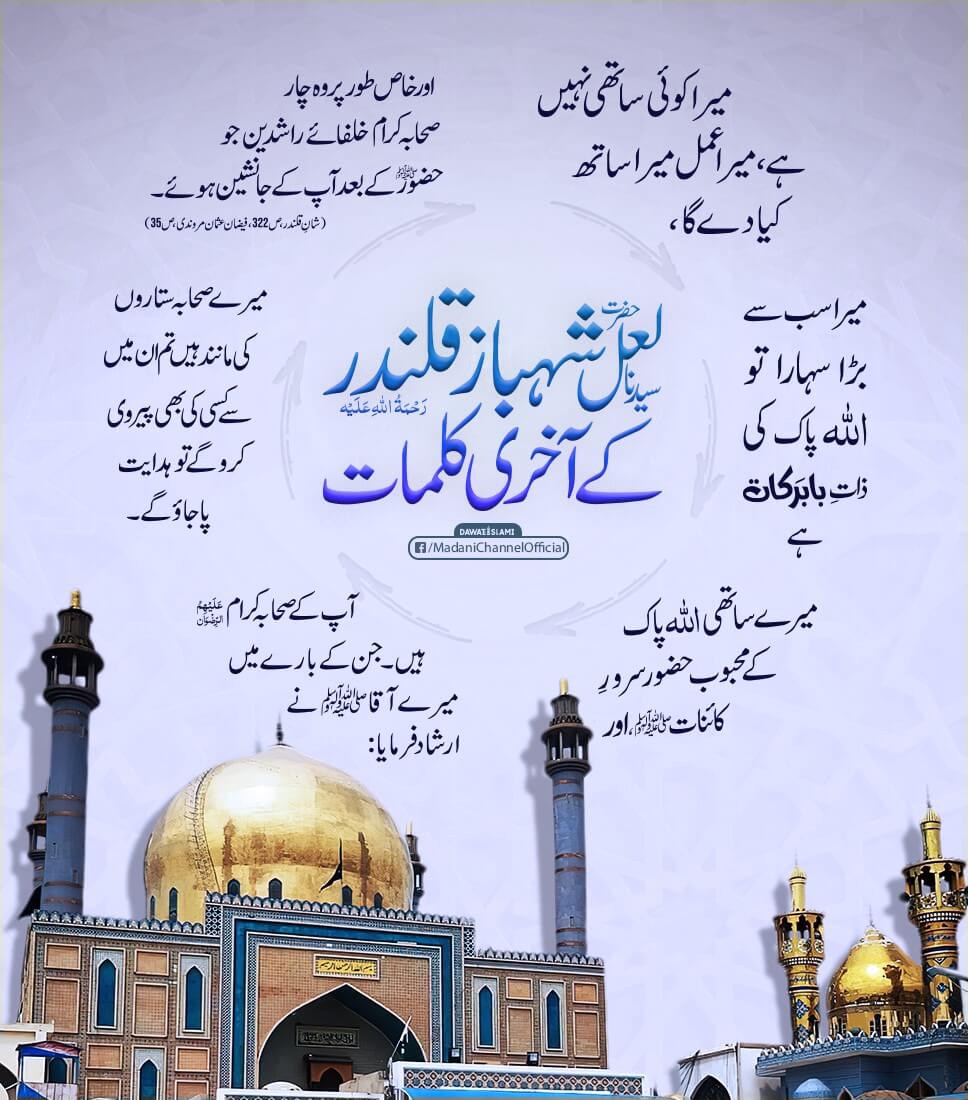 حضرت
سیدنا لعل شہباز قلندر
رَحْمَۃُ اللہِ عَلَیْہ
کے آخری کلمات
DAWATEISLAMI
/MadaniChannelOfficial
میرا کوئی ساتھی نہیں
ہے، میرا عمل میرا ساتھ
کیا دے گا،
میرا سب سے
بڑا سہارا تو
اللہ پاک کی
ذاتِ بابرکات
ہے
میرے ساتھی اللہ پاک
کے محبوب حضور سرورِ
کائنات ﷺ، اور
آپ کے صحابہ کرام عَلَیْہِمُ الرِّضْوَان
ہیں۔ جن کے بارے میں
میرے آقا ﷺ نے
ارشاد فرمایا:
میرے صحابہ ستاروں
کی مانند ہیں تم ان میں
سے کسی کی بھی پیروی
کرو گے تو ہدایت
پا جاؤ گے۔
اور خاص طور پر وہ چار
صحابہ کرام خلفائے راشدین جو
حضور ﷺ کے بعد آپ کے جانشین ہوئے۔
(شانِ قلندر، ص 322، فیضان عثمان مروندی، ص 35)